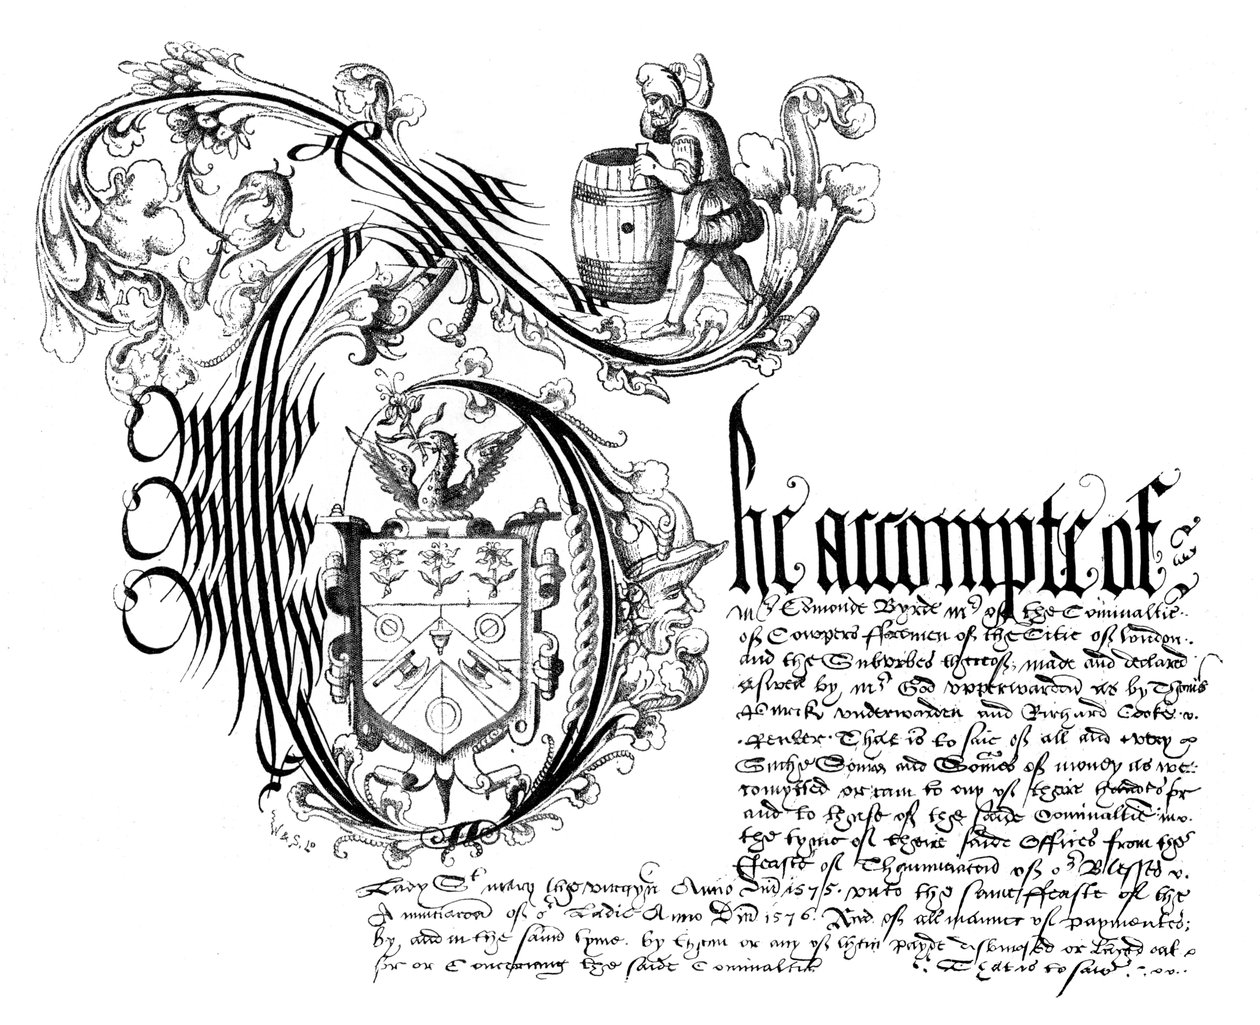 The accompte of
Mr Edmonde Byrde Mr of the Cominaltie
of Cowpers ffreemen of the Citie of London.
and the Suburbes thereof; made and declared
aswell by Mr God upperwarden as by Thoms
underwarden and Richard Cooke
Renter. That is to saie of all and every
Suche Somes and Somes of money as we
comytted or cam to eny of theire handes
and to thuse of the saide Cominaltie in
the tyme of theire saide Offices from the
ffeaste of Thanunciacon of or Blessed
Lady St mary the virgyn Anno Dni 1575. unto the same ffeaste of the
Anunciacon of or Ladie Anno Dni 1576. And of all manner of paymentes;
by, and in the saied tyme. by them or any of them payde disbursed or layed out
for or Concerning the saide Cominaltie That is to saie
W & S, Lo